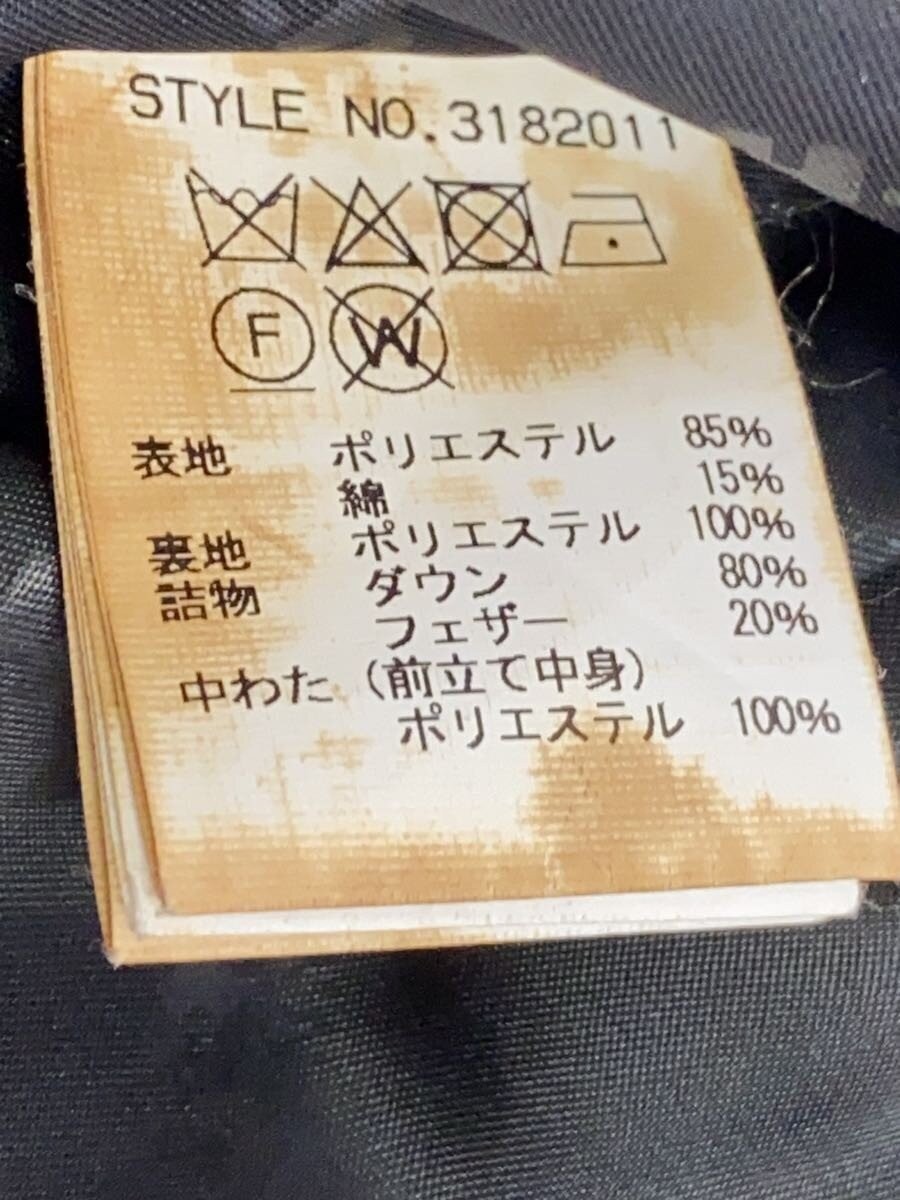 STYLE NO.3182011
F W
表地 ポリエステル 85%
綿 15%
裏地 ポリエステル 100%
詰物 ダウン 80%
フェザー 20%
中わた（前立て中身）
ポリエステル 100%